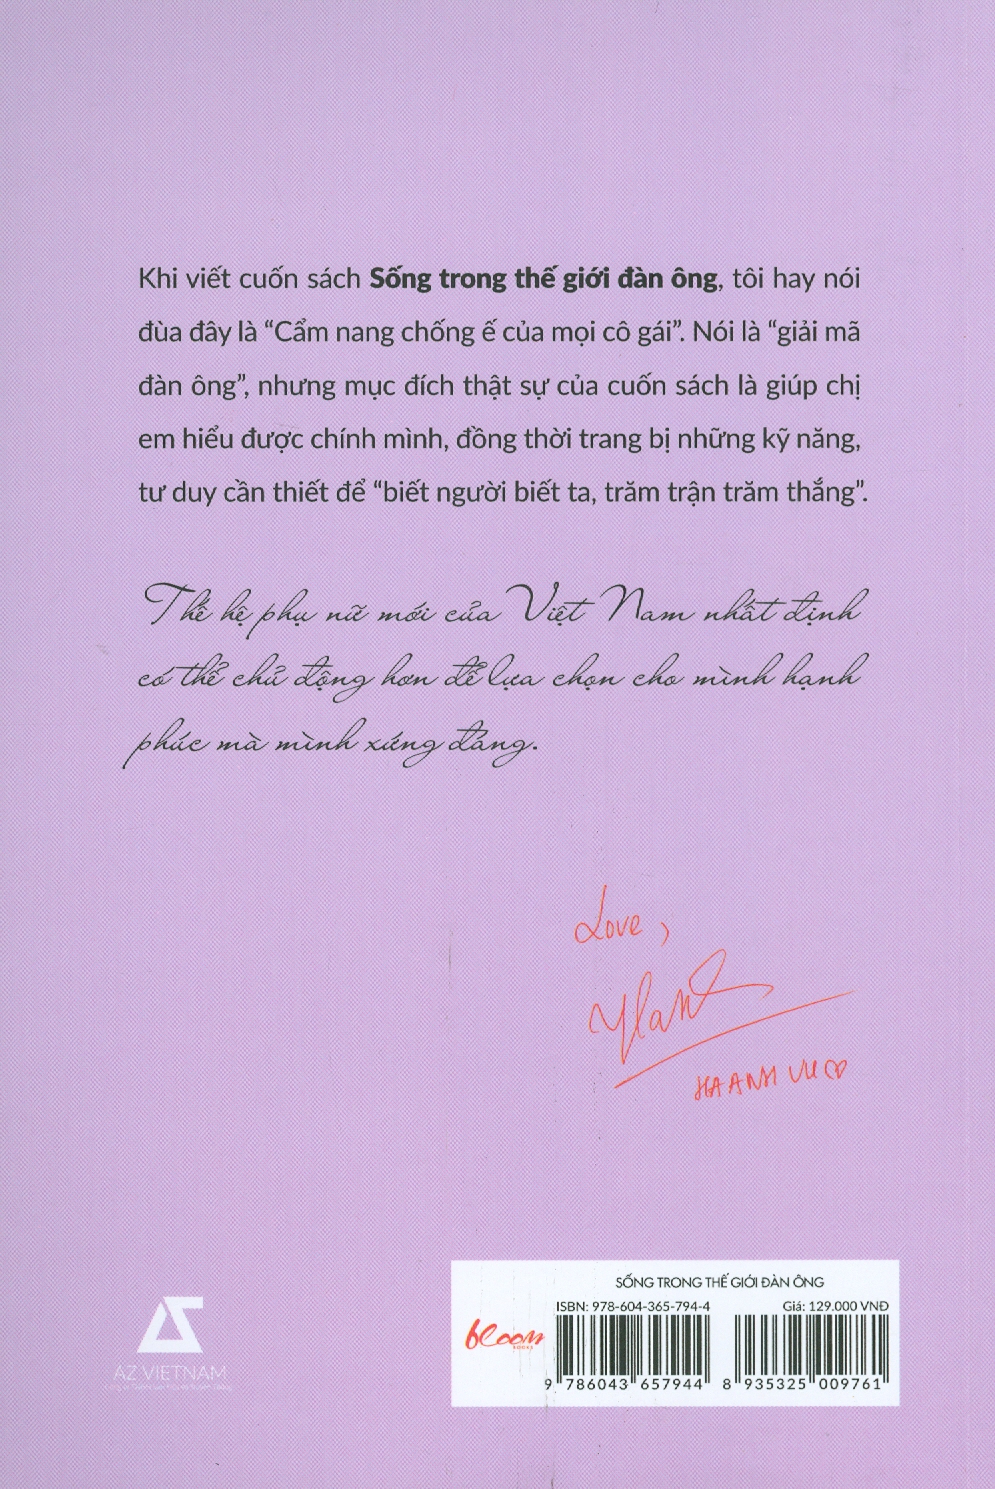 Khi viết cuốn sách Sống trong thế giới đàn ông, tôi hay nói
đùa đây là “Cẩm nang chống ế của mọi cô gái”. Nói là “giải mã
đàn ông”, nhưng mục đích thật sự của cuốn sách là giúp chị
em hiểu được chính mình, đồng thời trang bị những kỹ năng,
tư duy cần thiết để “biết người biết ta, trăm trận trăm thắng”.
Thế hệ phụ nữ mới của Việt Nam nhất định
có thể chủ động hơn để lựa chọn cho mình hạnh
phúc mà mình xứng đáng.
Love,
HA ANH VU
AZ VIETNAM
SỐNG TRONG THẾ GIỚI ĐÀN ÔNG
ISBN: 978-604-365-794-4 Giá: 129.000 VNĐ
bloom
BOOKS
9 786043 657944 8 935325 009761